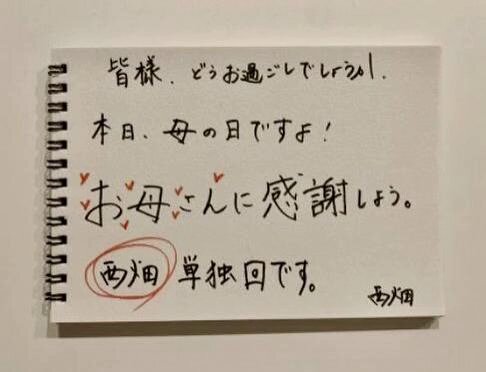 皆様、どうお過ごしでしょうか。
本日、母の日ですよ!
お母さんに感謝しよう。
西畑 単独回です。
西畑